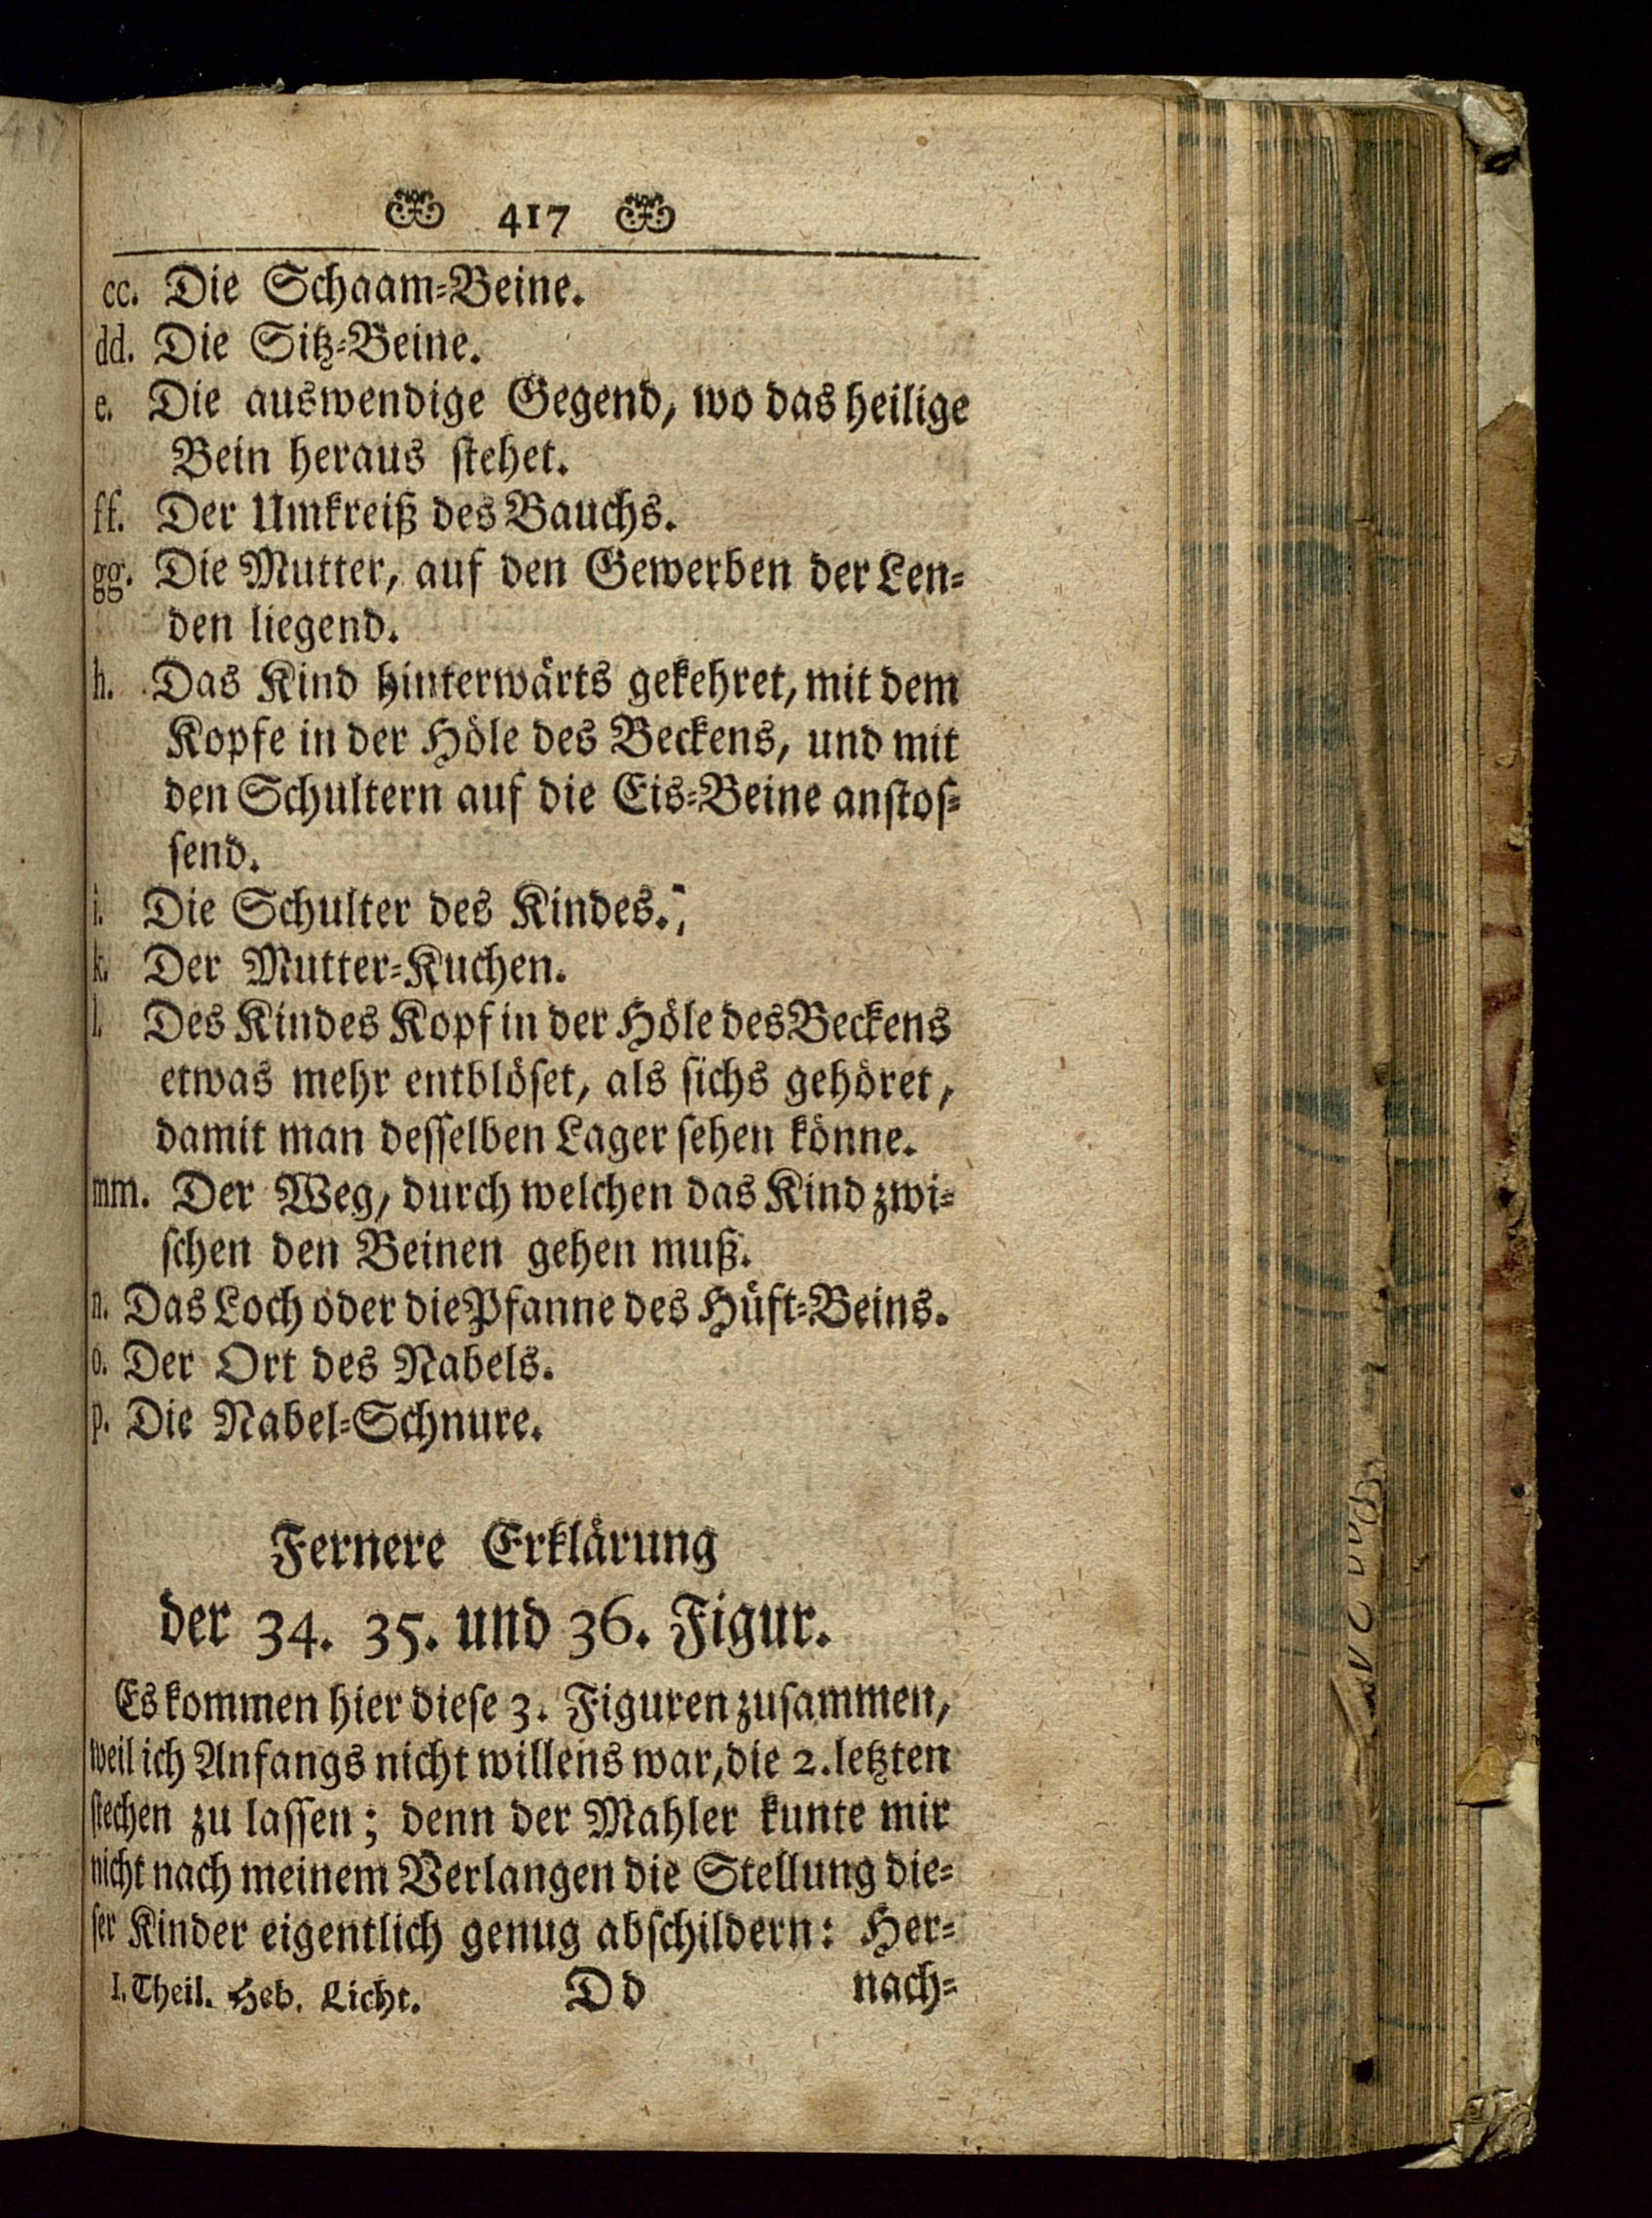 417
cc. Die Schaam-Beine.
dd. Die Sitz-Beine.
e. Die auswendige Gegend, wo das heilige
Bein heraus stehet.
ff. Der Umkreiß des Bauchs.
gg. Die Mutter, auf den Gewerben der Len-
den liegend.
h. Das Kind hinterwärts gekehret, mit dem
Kopfe in der Höle des Beckens, und mit
den Schultern auf die Eis-Beine anstos-
send.
i. Die Schulter des Kindes.
k. Der Mutter-Kuchen.
l. Des Kindes Kopf in der Höle des Beckens
etwas mehr entblöset, als sichs gehöret,
damit man desselben Lager sehen könne.
mm. Der Weg, durch welchen das Kind zwi-
schen den Beinen gehen muß.
n. Das Loch oder die Pfanne des Hüft-Beins.
o. Der Ort des Nabels.
p. Die Nabel-Schnure.
Fernere Erklärung
der 34. 35. und 36. Figur.
Es kommen hier diese 3. Figuren zusammen,
weil ich Anfangs nicht willens war, die 2. letzten
stechen zu lassen; denn der Mahler kunte mir
nicht nach meinem Verlangen die Stellung die-
ser Kinder eigentlich genug abschildern: Her-
I. Theil. Heb. Licht. Dd nach-